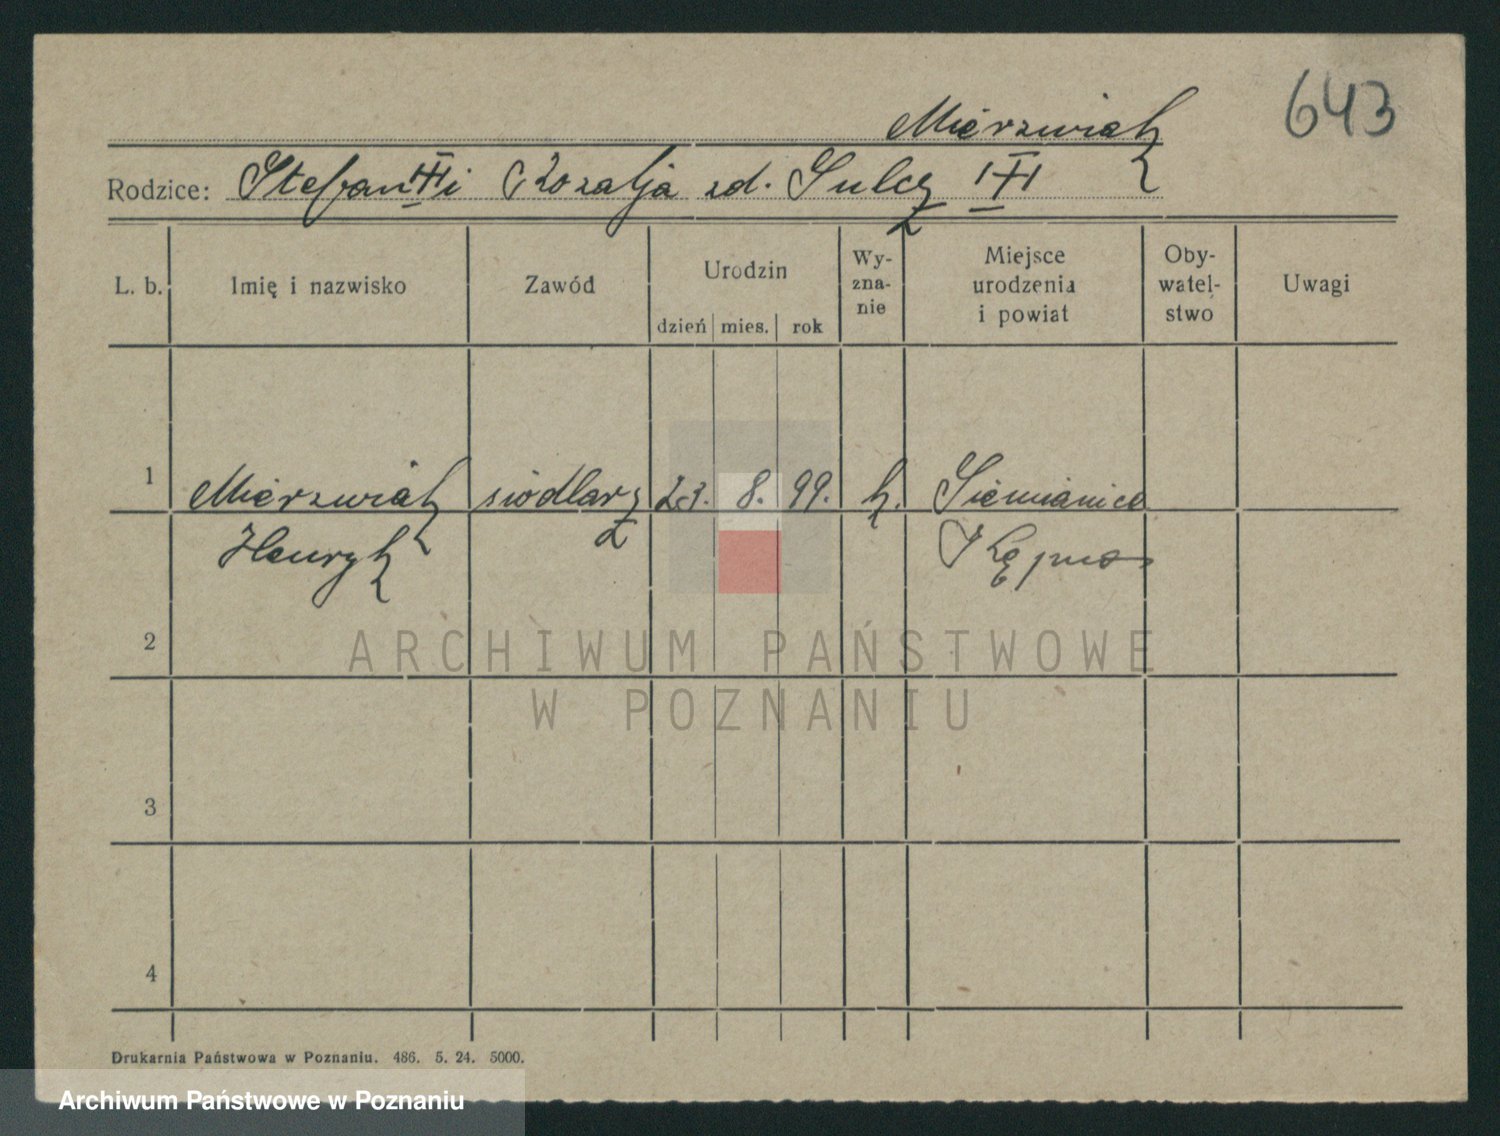 643
Mierzwiak
Rodzice: Stefan i Rozalja zd. Sulcz
L. b. Imię i nazwisko Zawód Urodzin Wy-zna-nie Miejsce urodzenia i powiat Oby-watel-stwo Uwagi
dzień mies. rok
1 Mierzwiak siodlarz 23. 8. 99. k. Siemianice
Henryk Kępno
2
ARCHIWUM PAŃSTWOWE
W POZNANIU
3
4
Drukarnia Państwowa w Poznaniu. 486. 5. 24. 5000.
Archiwum Państwowe w Poznaniu